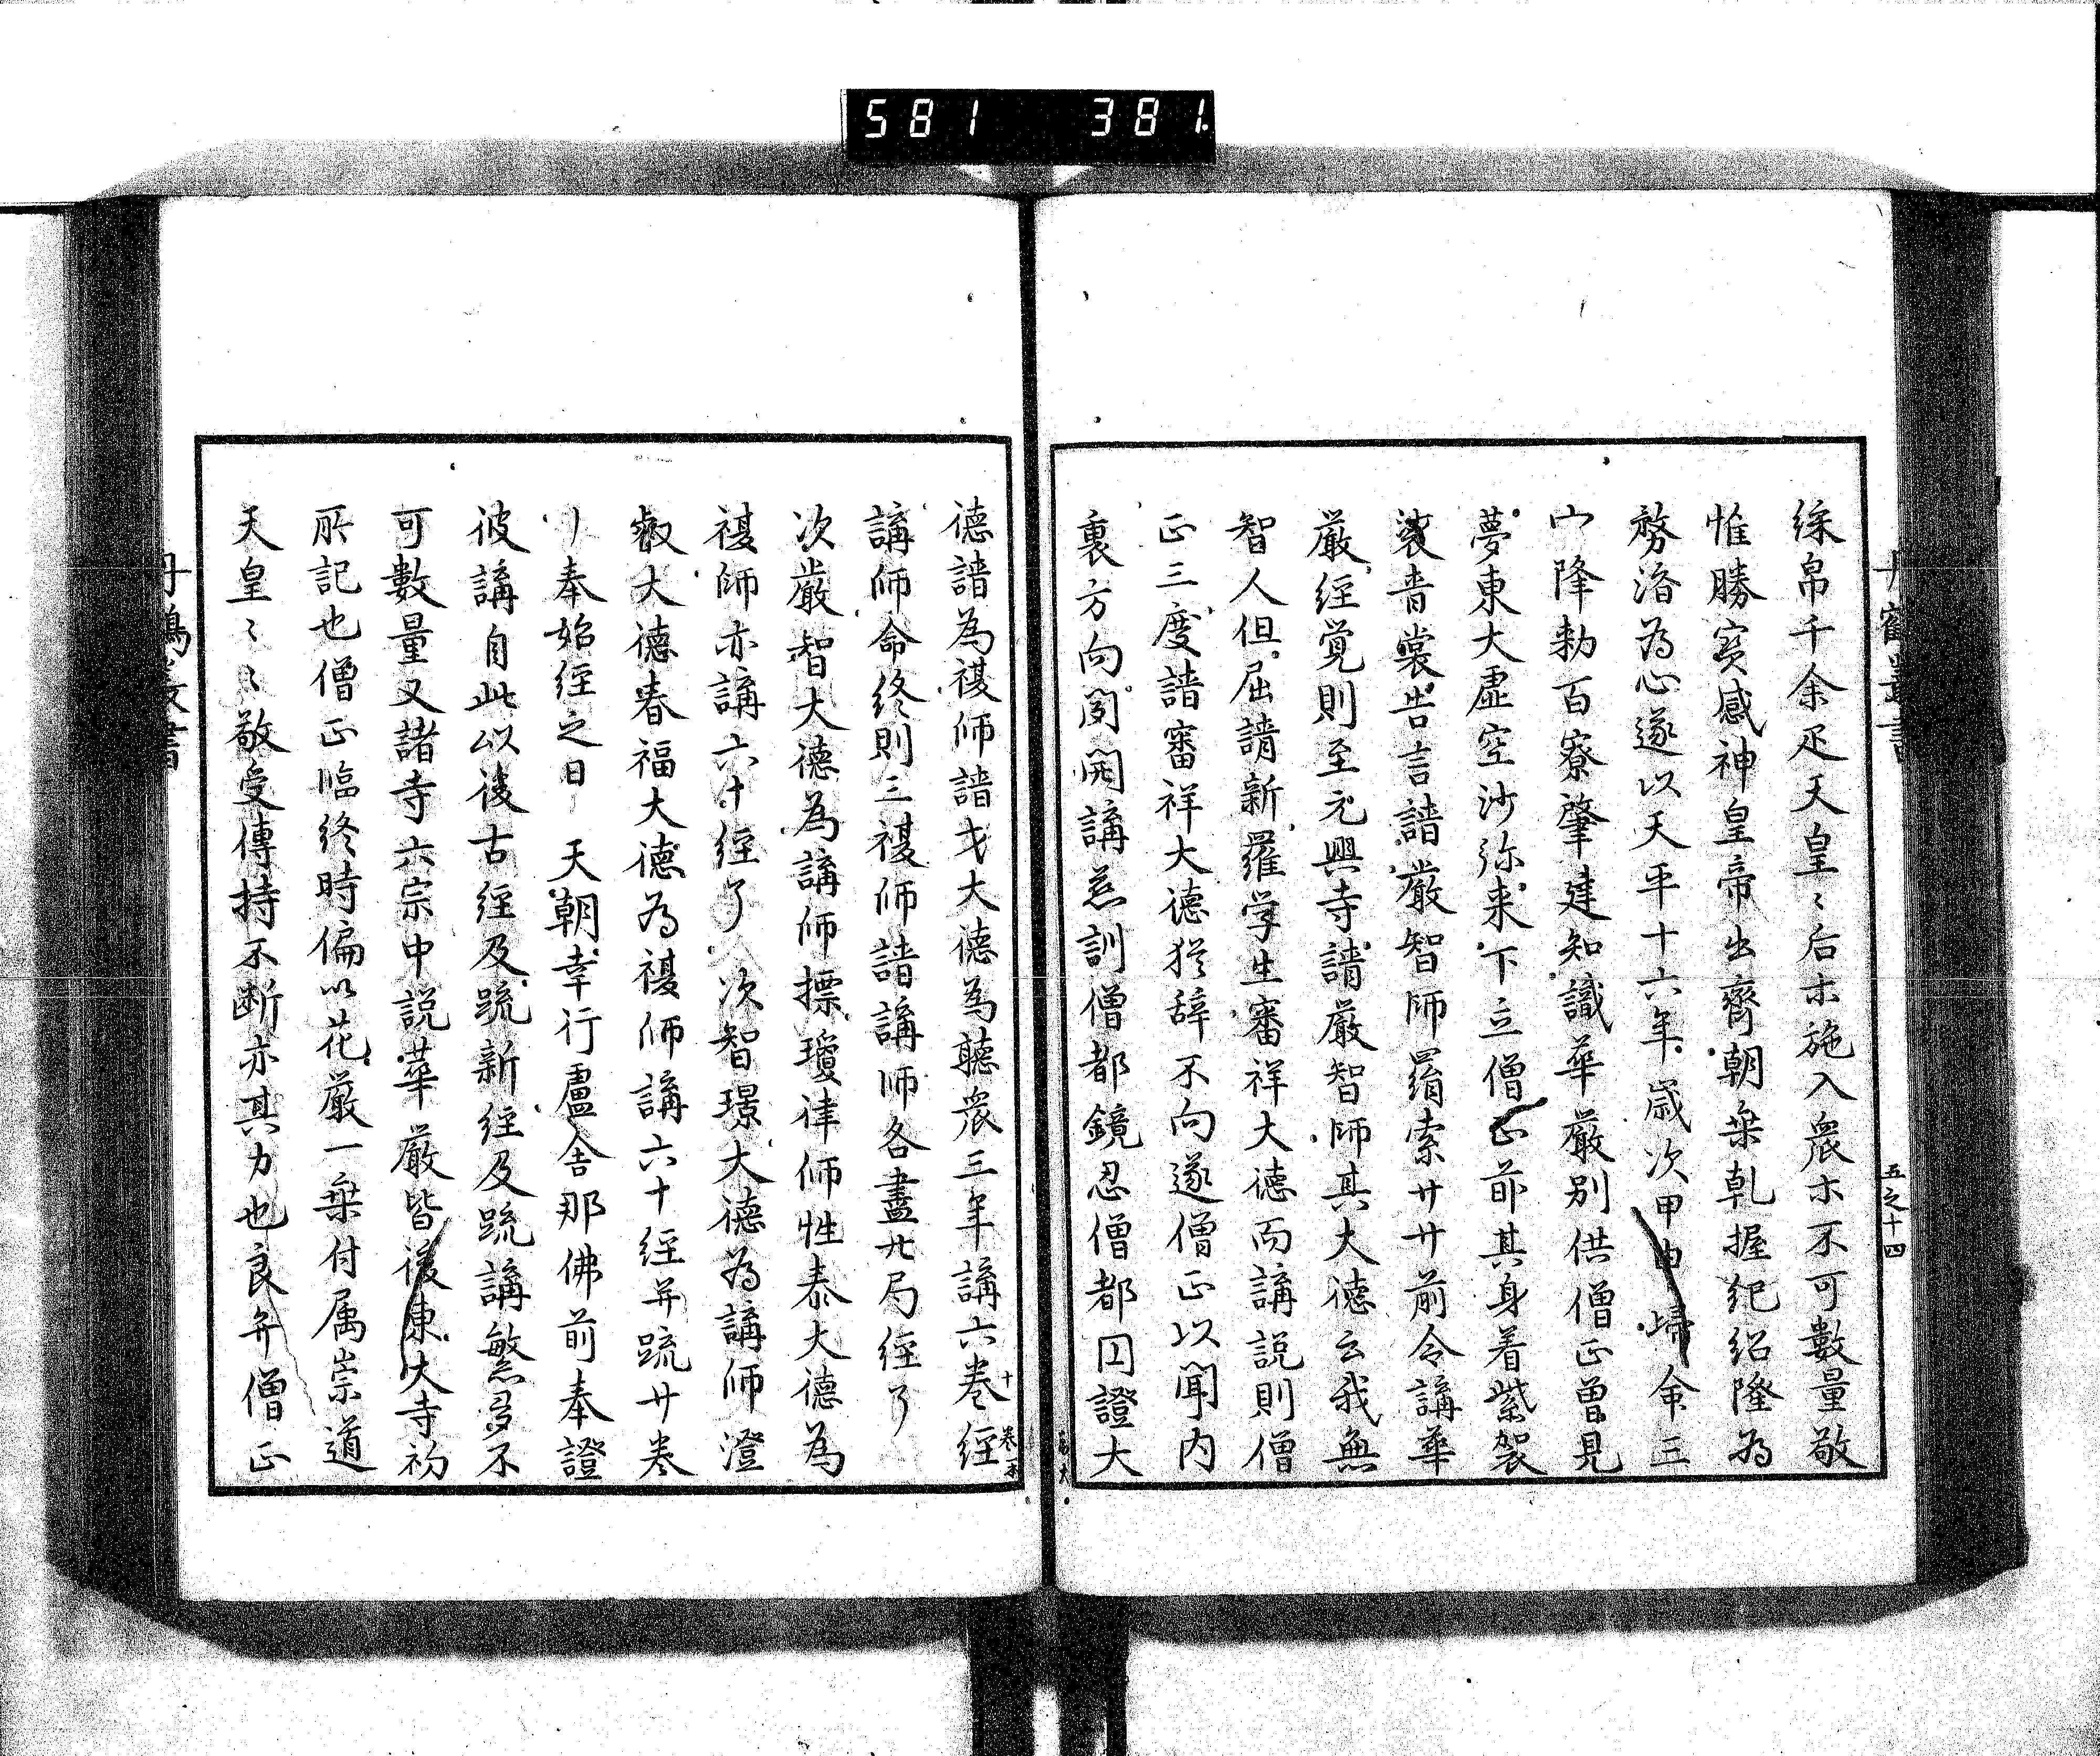 綵帛千余疋天皇〻后ホ施入衆ホ不可數量敬
惟勝寳感神皇帝出齊朝乗乹握紀紹隆為
務濟為心遂以天平十六年歳次甲申帰命三
宀降勅百寮肇建知識華嚴別供僧正曽見
夢東大虚空沙弥来下立僧正前其身着紫袈
裟青裳告言請嚴智師羂索廾廾前令講華
嚴經覚則至元興寺請嚴智師其大德云我無
智人但屈請新羅学生審祥大德而講説則僧
正三度請審祥大德猶辞不向遂僧正以聞内
裏方向開講慈訓僧都鏡忍僧都囙證大
德請為複師請才大德為聽衆三年講六十巻經
講師命終則三複師請講師各盡廿局經了
次嚴智大德為講師標瓊律師性泰大德為
複師亦講六十經了次智璟大德為講師澄
叡大德春福大德為複師講六十經并疏廿巻
奉始經之日 天朝幸行盧舎那佛前奉證
彼講自此以後古經及疏新經及疏講繁多不
可數量又諸寺六宗中説華嚴皆後東大寺初
所記也僧正臨終時偏以花嚴一乗付属崇道
天皇〻〻敬受傳持不断亦其力也良弁僧正
五之十四